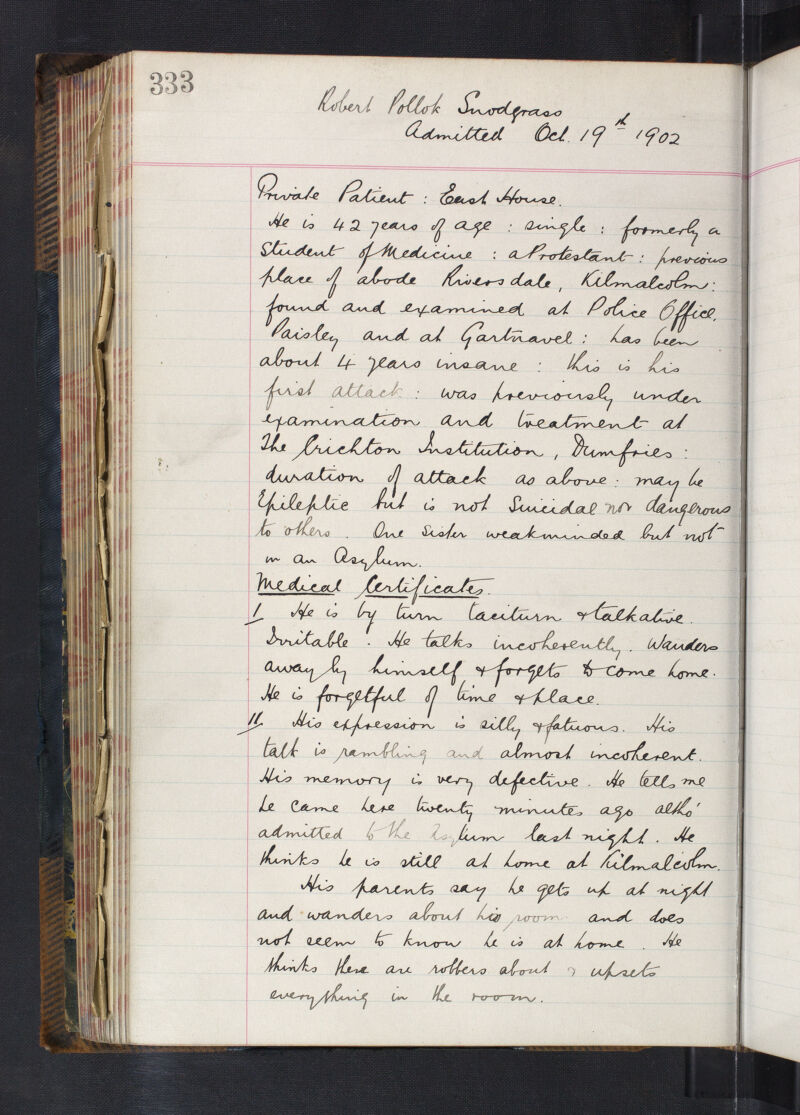 333
Robert Pollok Snodgrass
Admitted Oct. 19th 1902
Private Patient : East House.
He is 42 years of age : single : formerly a
Student of Medicine : a Protestant : previous
place of abode Riversdale, Kilmalcolm :
found and examined at Police Office,
Paisley and at Gartnavel : has been
about 4 years insane : this is his
first attack : was previously under
examination and treatment at
The Crichton Institution, Dumfries :
duration of attack as above : may be
Epileptic but is not Suicidal nor dangerous
to others. One sister weakminded but not
in an Asylum.
Medical Certificates.
I. He is by turn taciturn & talkative.
Irritable. He talks incoherently. Wanders
away by himself & forgets to come home.
He is forgetful of time & place.
II. His expression is silly & fatuous. His
talk is rambling and almost incoherent.
His memory is very defective. He tells me
he came here twenty minutes ago altho'
admitted to the Asylum last night. He
thinks he is still at home at Kilmalcolm.
His parents say he gets up at night
and wanders about his room and does
not seem to know he is at home. He
thinks there are robbers about & upsets
everything in the room.